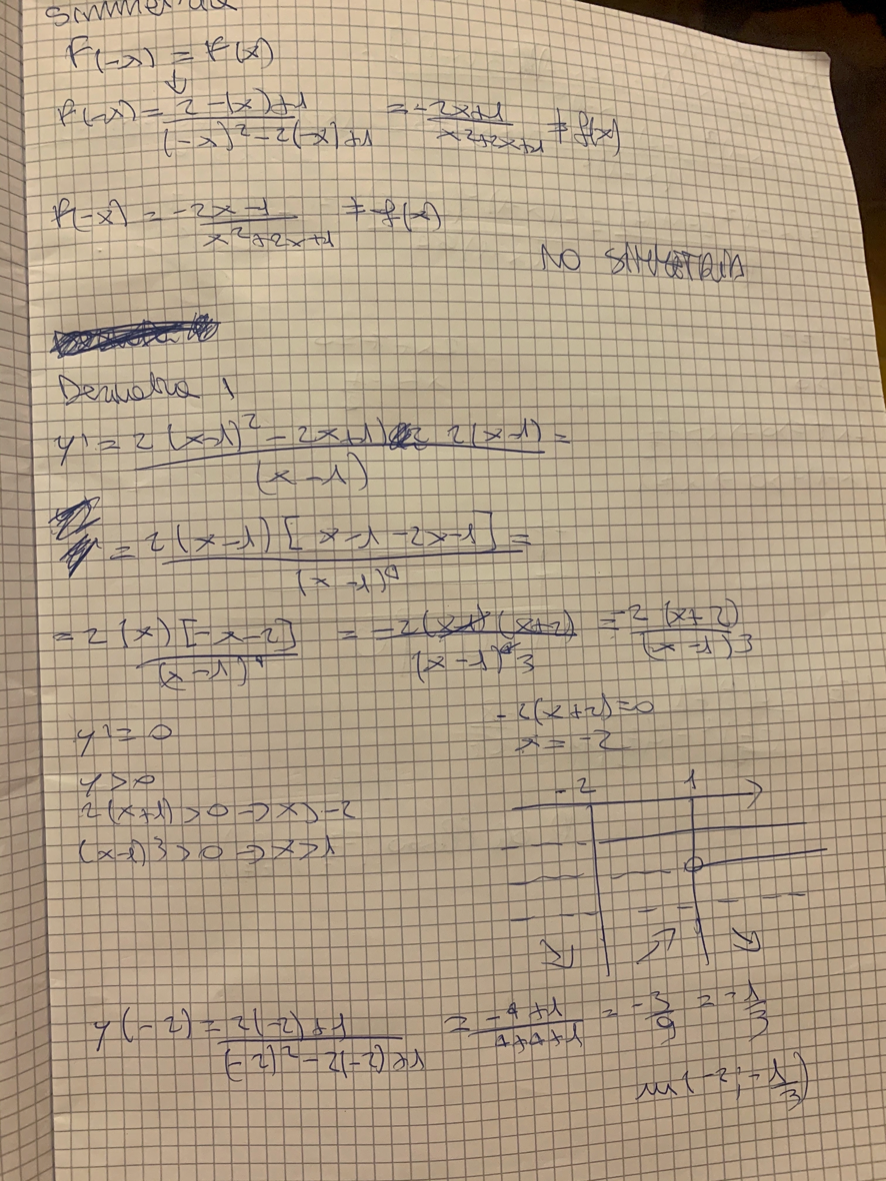 Simmetria
F(-x) = F(x)
↓
F(-x) = 2-(x)+1 / (-x)^2-2(-x)+1 = -2x+1 / x^2+2x+1 ≠ f(x)
F(-x) = -2x-1 / x^2+2x+1 ≠ -f(x)
NO SIMMETRIA
Derivata 1
y' = 2(x-1)^2 - 2x+1) 2(x-1) / (x-1) =
= 2(x-1)[x-1-2x-1] / (x-1)^4 =
= 2(x)[-x-2] / (x-1)^4 = -2(x-1)(x+2) / (x-1)^4 3 = -2(x+2) / (x-1)^3
y' = 0
-2(x+2)=0
x = -2
y > 0
2(x+1) > 0 => x > -2
(x-1)^3 > 0 => x > 1
-2 1
y(-2) = 2(-2)+1 / (-2)^2-2(-2)+1 = -4+1 / 4+4+1 = -3/9 = -1/3
m(-2; -1/3)